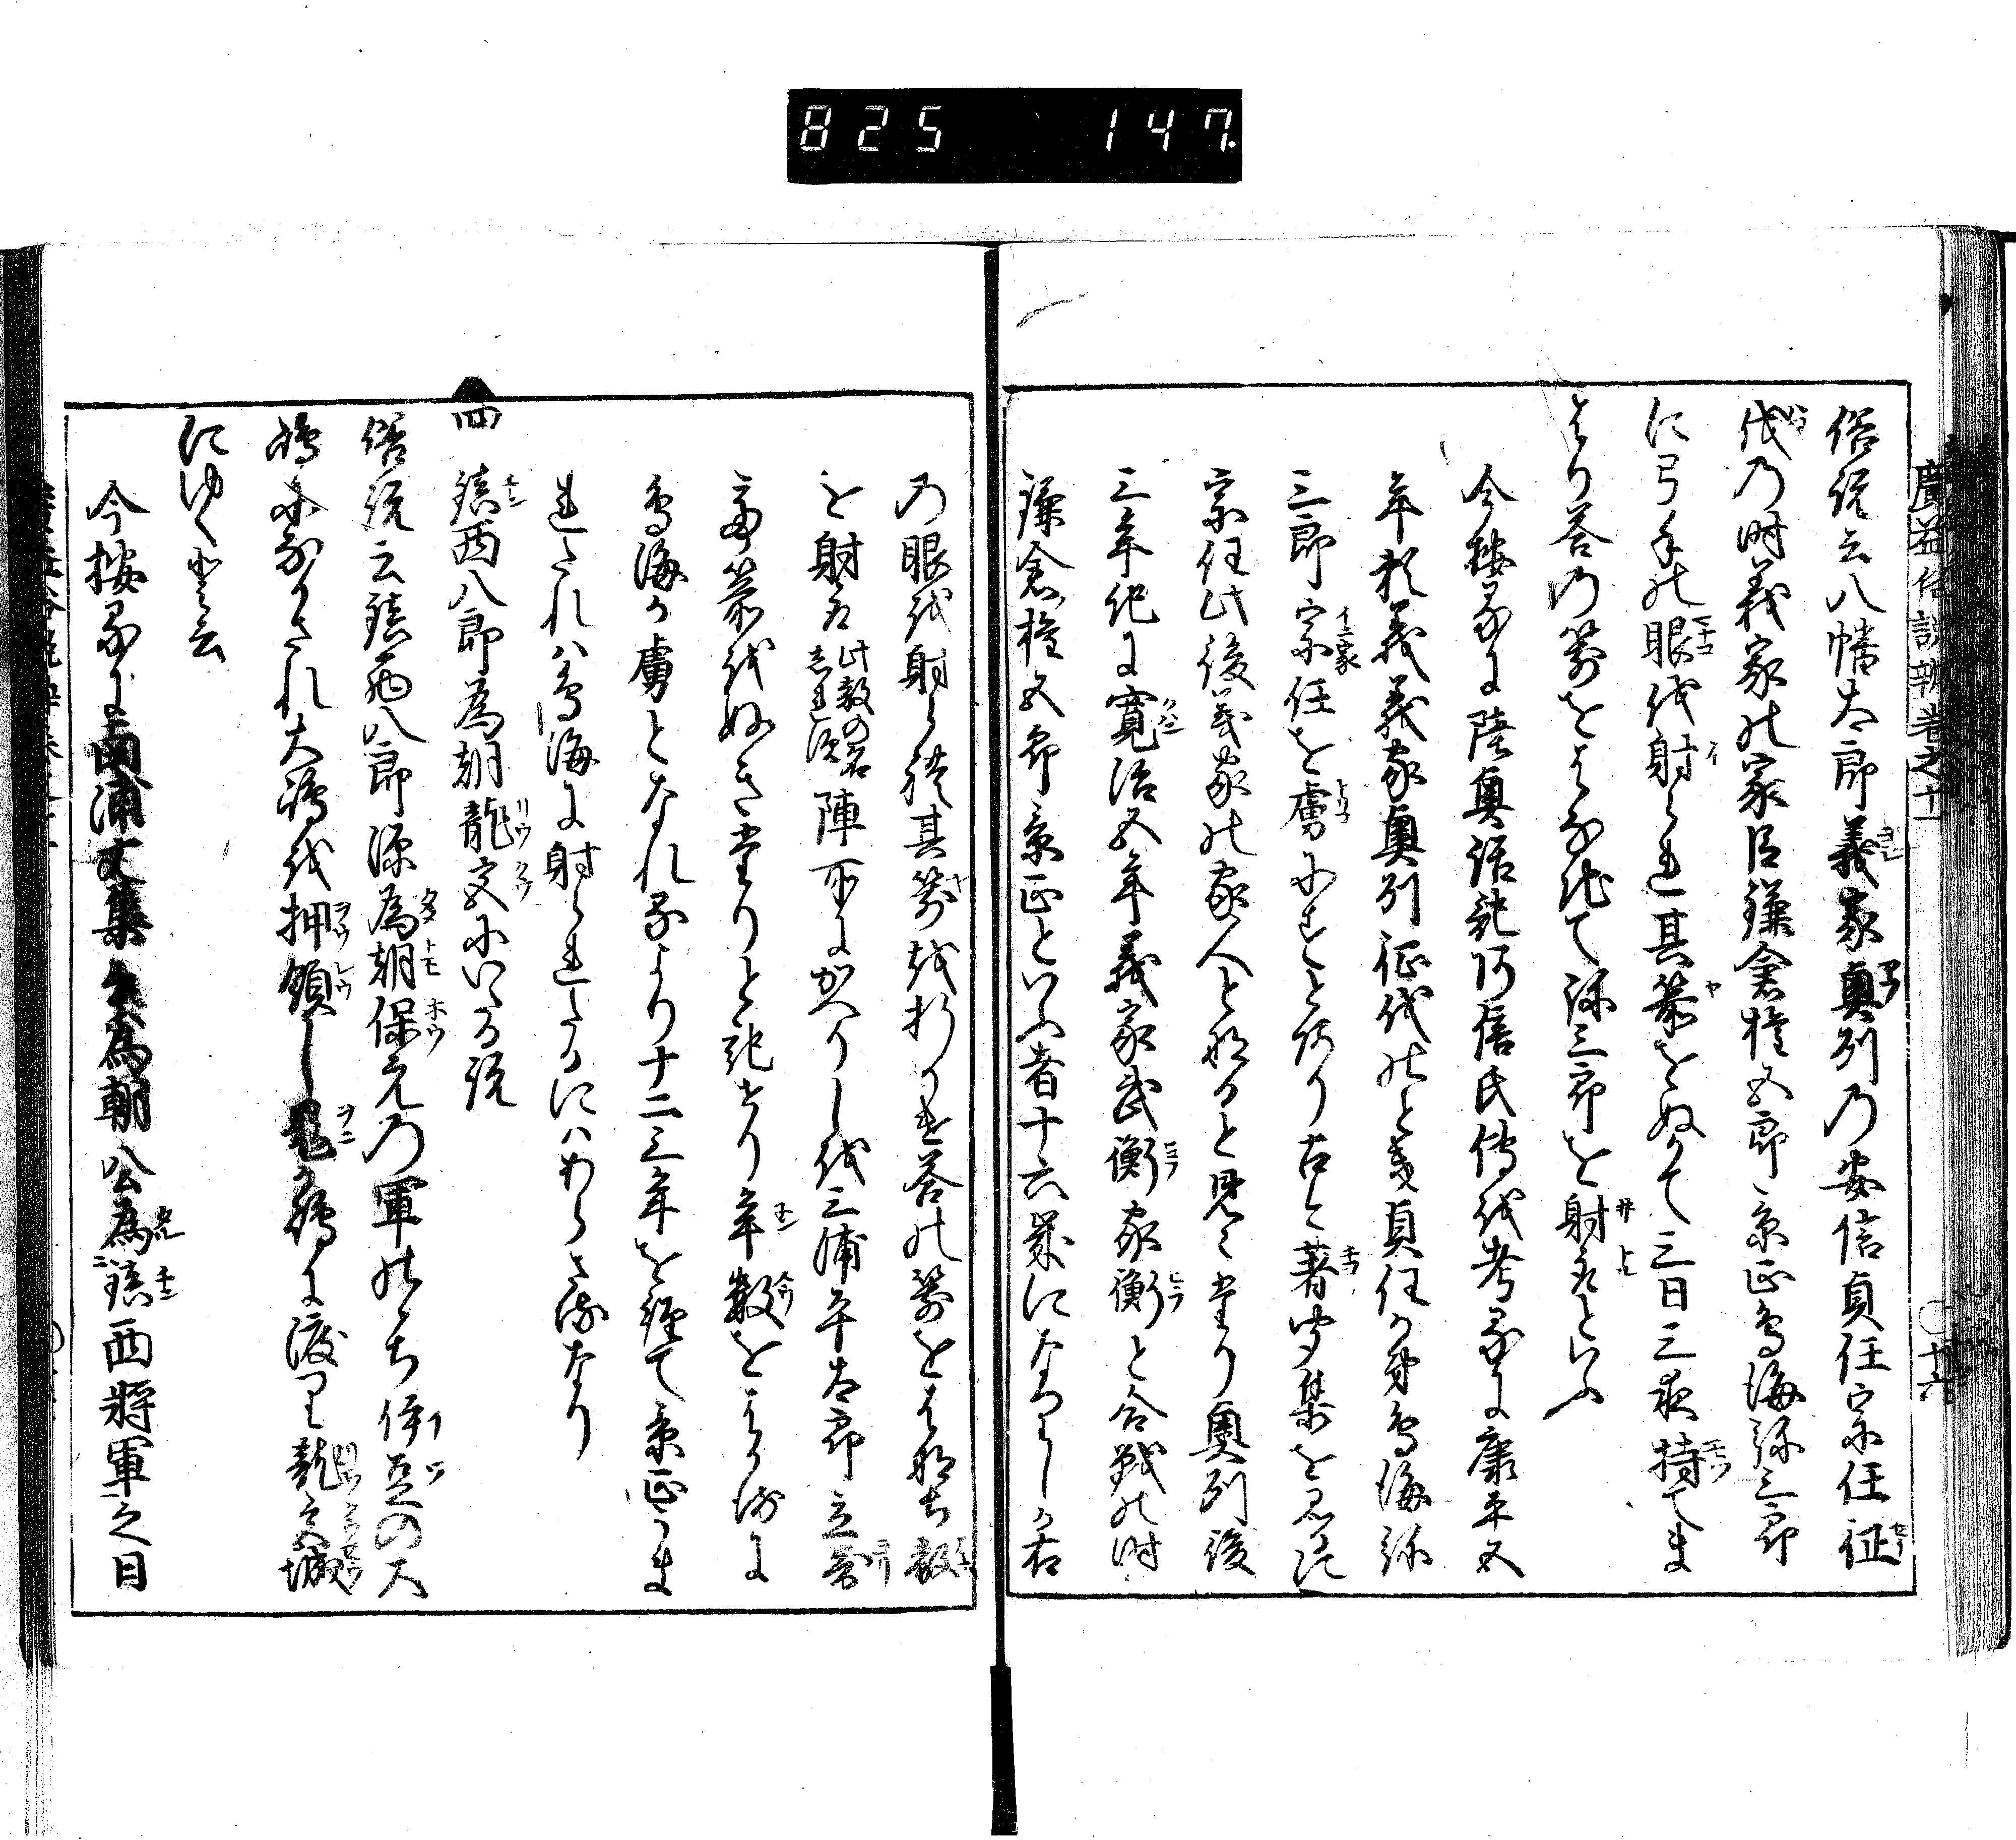 825 147.
廣益俗説辨 巻之十一 ○十六
俗説云八幡太郎義家奥列乃安信貞任宗任征
伐の時義家の家臣鎌倉権五郎景正鳥海弥三郎
に弓手の眼を射られ其箭をぬかて三日三夜持てま
はり答の箭をはなちて弥三郎を射取といふ
今按るに陸奥話記阿倍氏傳を考るに康平五
年頼義義家奥列征伐のとき貞任か弟鳥海弥
三郎宗任を虜にすとあり古今著聞集を見れ
宗任此後義家の家人と成ると見えたり奥列後
三年紀に寛治五年義家武衡家衡と合戦の時
鎌倉権五郎景正といふ者十六歳になりしか右
の眼を射られ其箭を折かけ答の箭をはなち敵
を射取 此敵の名 しれす 陣所にかへりしを三浦平太郎立寄
て箭をぬきたりと記せり年数をはかるに
鳥海か虜となれるより十二三年を経て景正うま
れたれハ鳥海に射られたるにハあらさるなり
四 鎮西八郎為朝龍宮にいたる説
俗説云鎮西八郎源為朝保元乃軍のゝち伊豆の大
嶋になかされ大嶋を押領し鬼か嶋に渡り龍宮城
にゆくと云云
今按るに南浦文集 為朝公為鎮西將軍之日